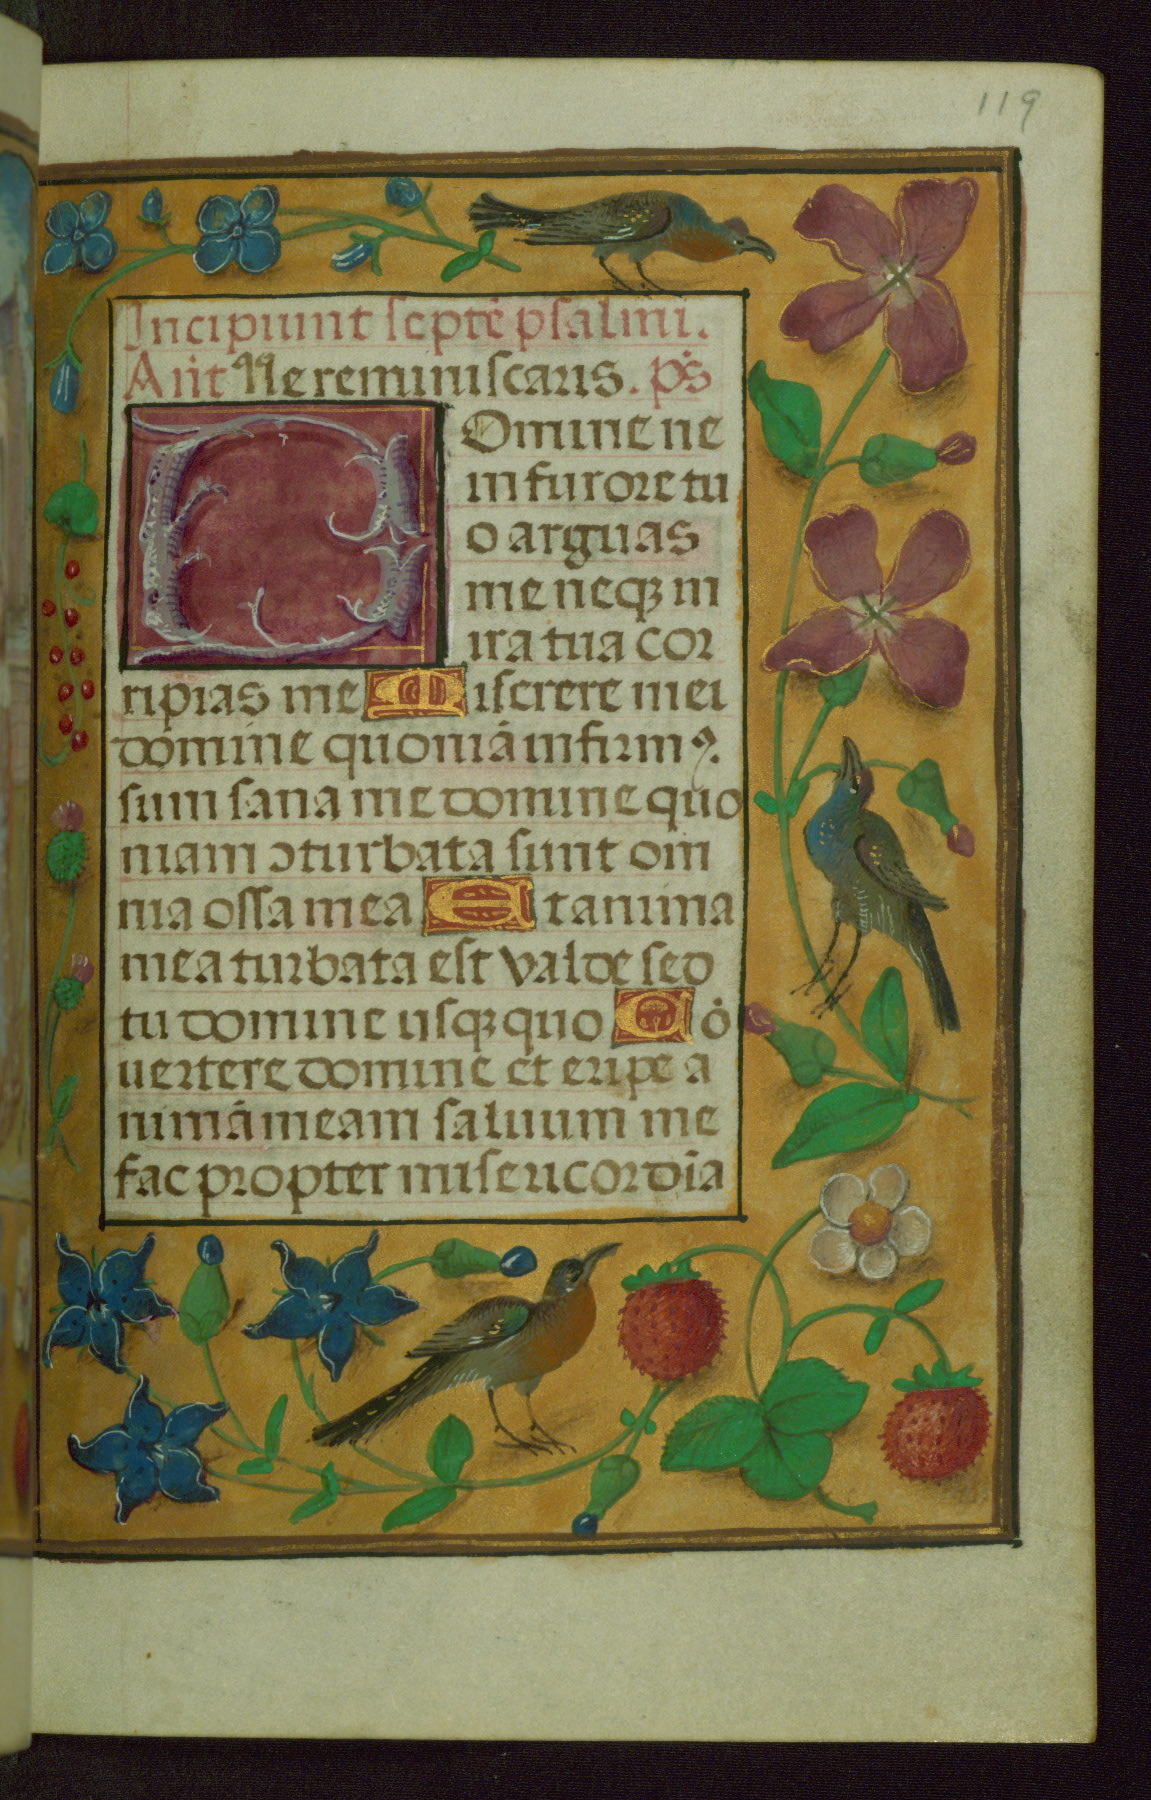 119
Incipiunt septē psalmi.
Añt Ne reminiscaris. ps̄
Domine ne
in furore tu
o arguas
me neqꝫ in
ira tua cor
ripias me Miserere mei
domine quoniā infirmꝰ.
sum sana me domine quo
niam ↄturbata sunt om
nia ossa mea Et anima
mea turbata est valde sed
tu domine usqꝫ quo Cō
uertere domine et eripe a
nimā meam saluum me
fac propter misericordiā